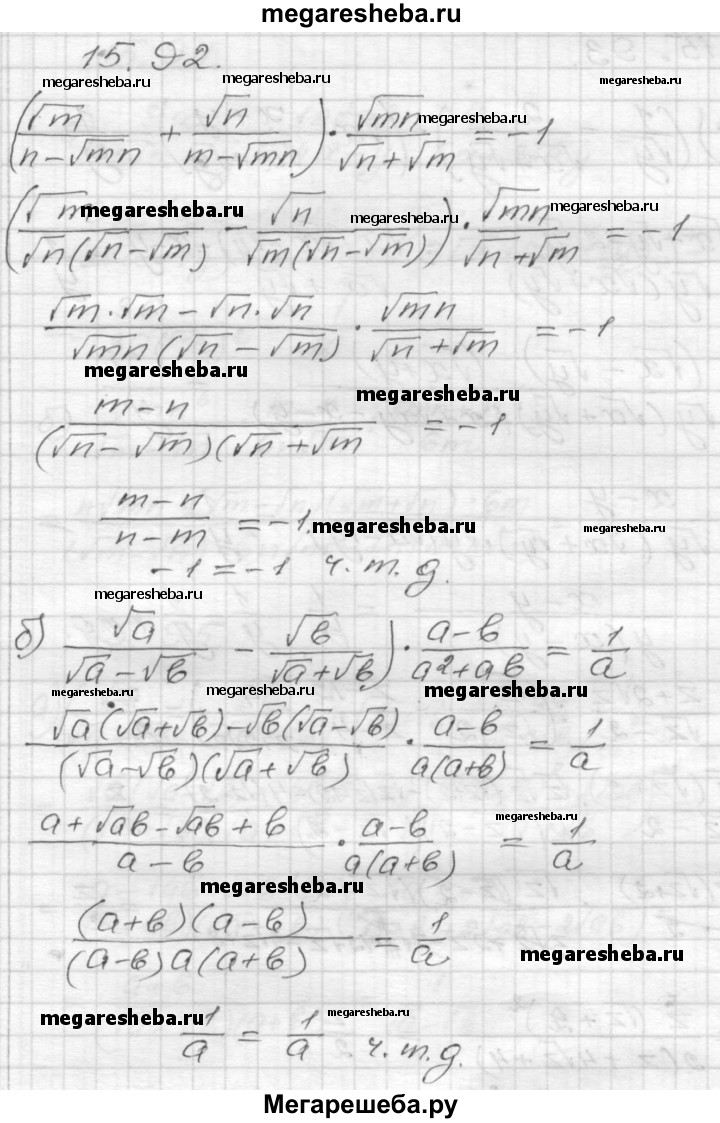 megaresheba.ru
15.92.
megaresheba.ru megaresheba.ru megaresheba.ru
(√m/(n-√mn) + √n/(m-√mn)) · √mn/(√n+√m) = -1
megaresheba.ru
(√m/(√n(√n-√m)) - √n/(√m(√n-√m))) · √mn/(√n+√m) = -1
megaresheba.ru megaresheba.ru megaresheba.ru
(√m·√m - √n·√n)/(√mn(√n-√m)) · √mn/(√n+√m) = -1
megaresheba.ru
megaresheba.ru
(m-n)/((√n-√m)(√n+√m)) = -1
(m-n)/(n-m) = -1.
megaresheba.ru megaresheba.ru
-1 = -1 ч.т.д.
megaresheba.ru
б) √a/(√a-√b) - √b/(√a+√b)) · (a-b)/(a²+ab) = 1/a
megaresheba.ru megaresheba.ru megaresheba.ru
(√a(√a+√b)-√b(√a-√b))/((√a-√b)(√a+√b)) · (a-b)/(a(a+b)) = 1/a
megaresheba.ru
(a+√ab-√ab+b)/(a-b) · (a-b)/(a(a+b)) = 1/a
megaresheba.ru
((a+b)(a-b))/((a-b)a(a+b)) = 1/a
megaresheba.ru
megaresheba.ru megaresheba.ru
1/a = 1/a ч.т.д.
Мегарешеба.ру